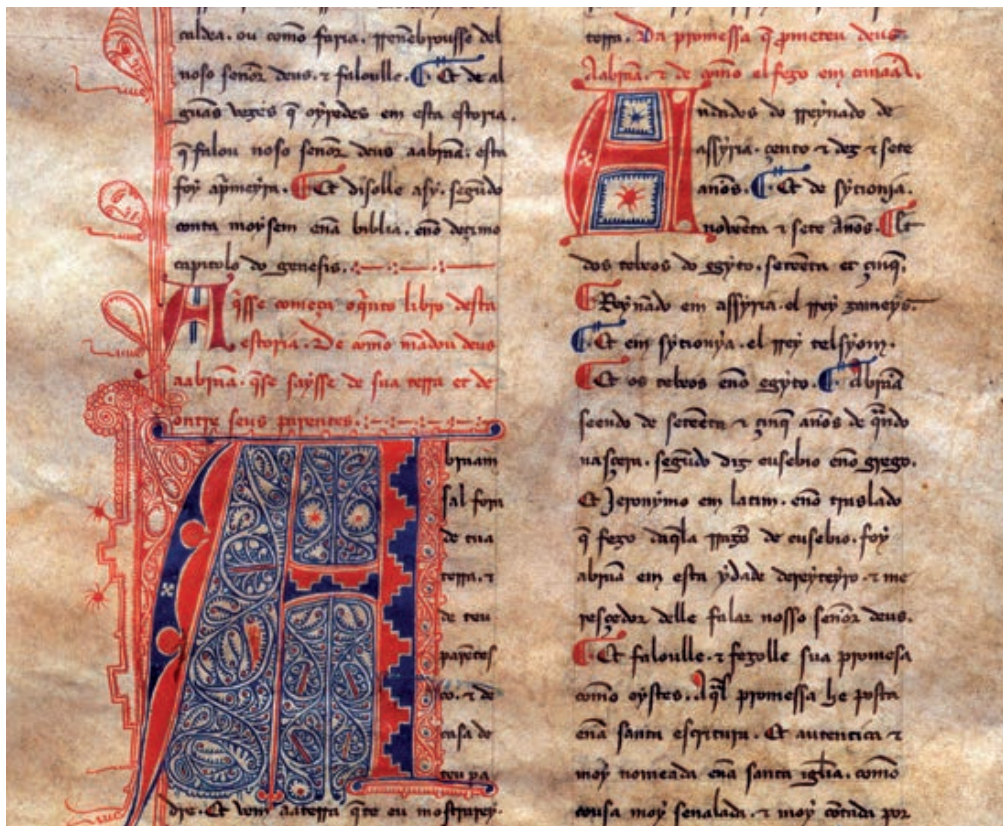 caldea. ou como faria. rrenẽbrousse del
noso senõr deus. ⁊ faloulle. Et de al
guãs vezes q̃ oyredes em esta estoria.
q̃ falou noso senõr deus aabrãa. esta
foy a p̃meyra. Et disolle asy. segũdo
conta moysem enã biblia. enõ deçimo
capitolo do genesis.
Aq̃sse começa o q̃nto libro desta
estoria. De como mãdou deus
aabrãa. q̃sse saysse de sua terra et de
ontre seus parentes.
Abraam
sal fora
de tua
terra. ⁊
de teu
parẽtes
co. ⁊ de
casa de
teu pa
dre. Et vem aaterra q̃te eu mostrarey.
terra. Da promessa q̃ p̃meteu deus
Aabrãa. ⁊ de como el fezo em canaã.
Andados do rreynado de
assyria. çento ⁊ dez ⁊ sete
anos. Et de syçionia.
noveẽta ⁊ sete Anos. Et
dos tebeos do egyto. seteẽta et çinq̃.
Reynãdo em assyria. el rrey zameys.
Et em syçionya. el rrey telsyom.
Et os tebeos enõ egyto. Abrãa
seendo de seteẽta ⁊ çinq̃ anos de q̃ndo
nasçera. segũdo diz eusebio enõ grego.
Et Jeronymo em latim. enõ traslado
q̃ fezo daq̃la rrazõ de eusebio. foy
abrãa em esta ydade dereyteyro. ⁊ me
resçedor delle falar nosso senõr deus.
Et faloulle. ⁊ fezolle sua promesa
como oystes. Aq̃l promessa he posta
enã santa escritura. Et autentica ⁊
moy nomeada enã santa iglia. como
cousa moy senalada. ⁊ moy cõtada por